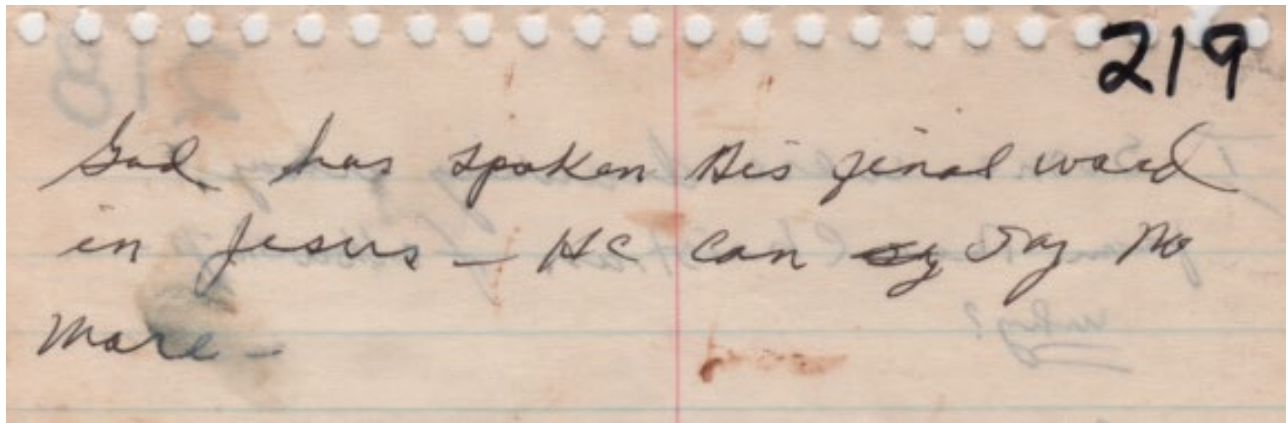 219
God has spoken His final word
in Jesus – He can say no
more –